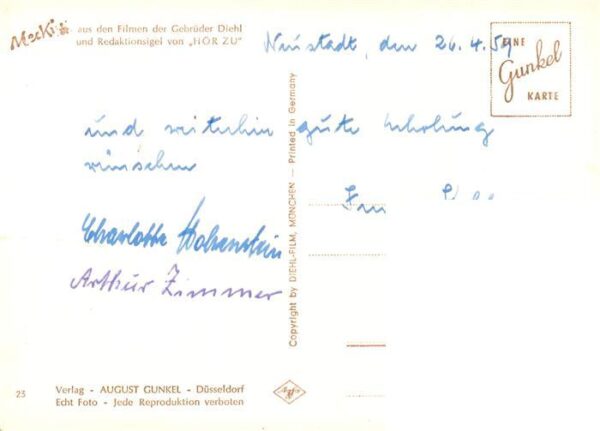 Mecki aus den Filmen der Gebrüder Diehl
und Redaktionsigel von „HÖR ZU"
Neustadt, den 26.4.59
EINE
Gunkel
KARTE
und weiterhin gute Erholung
wünschen
Charlotte Hohenstein
Arthur Zimmer
Copyright by DIEHL-FILM, MÜNCHEN – Printed in Germany
23
Verlag - AUGUST GUNKEL - Düsseldorf
Echt Foto - Jede Reproduktion verboten
Agfa